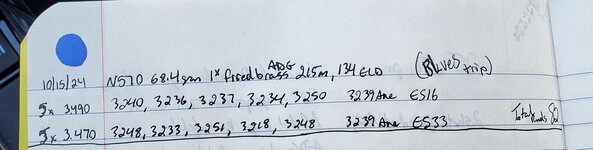 10/15/24 N570 68.4grn 1x fired brass ADG 215m, 134 ELD (Blues trip)
5x 3.490 3240, 3236, 3237, 3234, 3250 3239 Ave ES16
5x 3.470 3248, 3233, 3251, 3218, 3248 3239 Ave ES33 Total